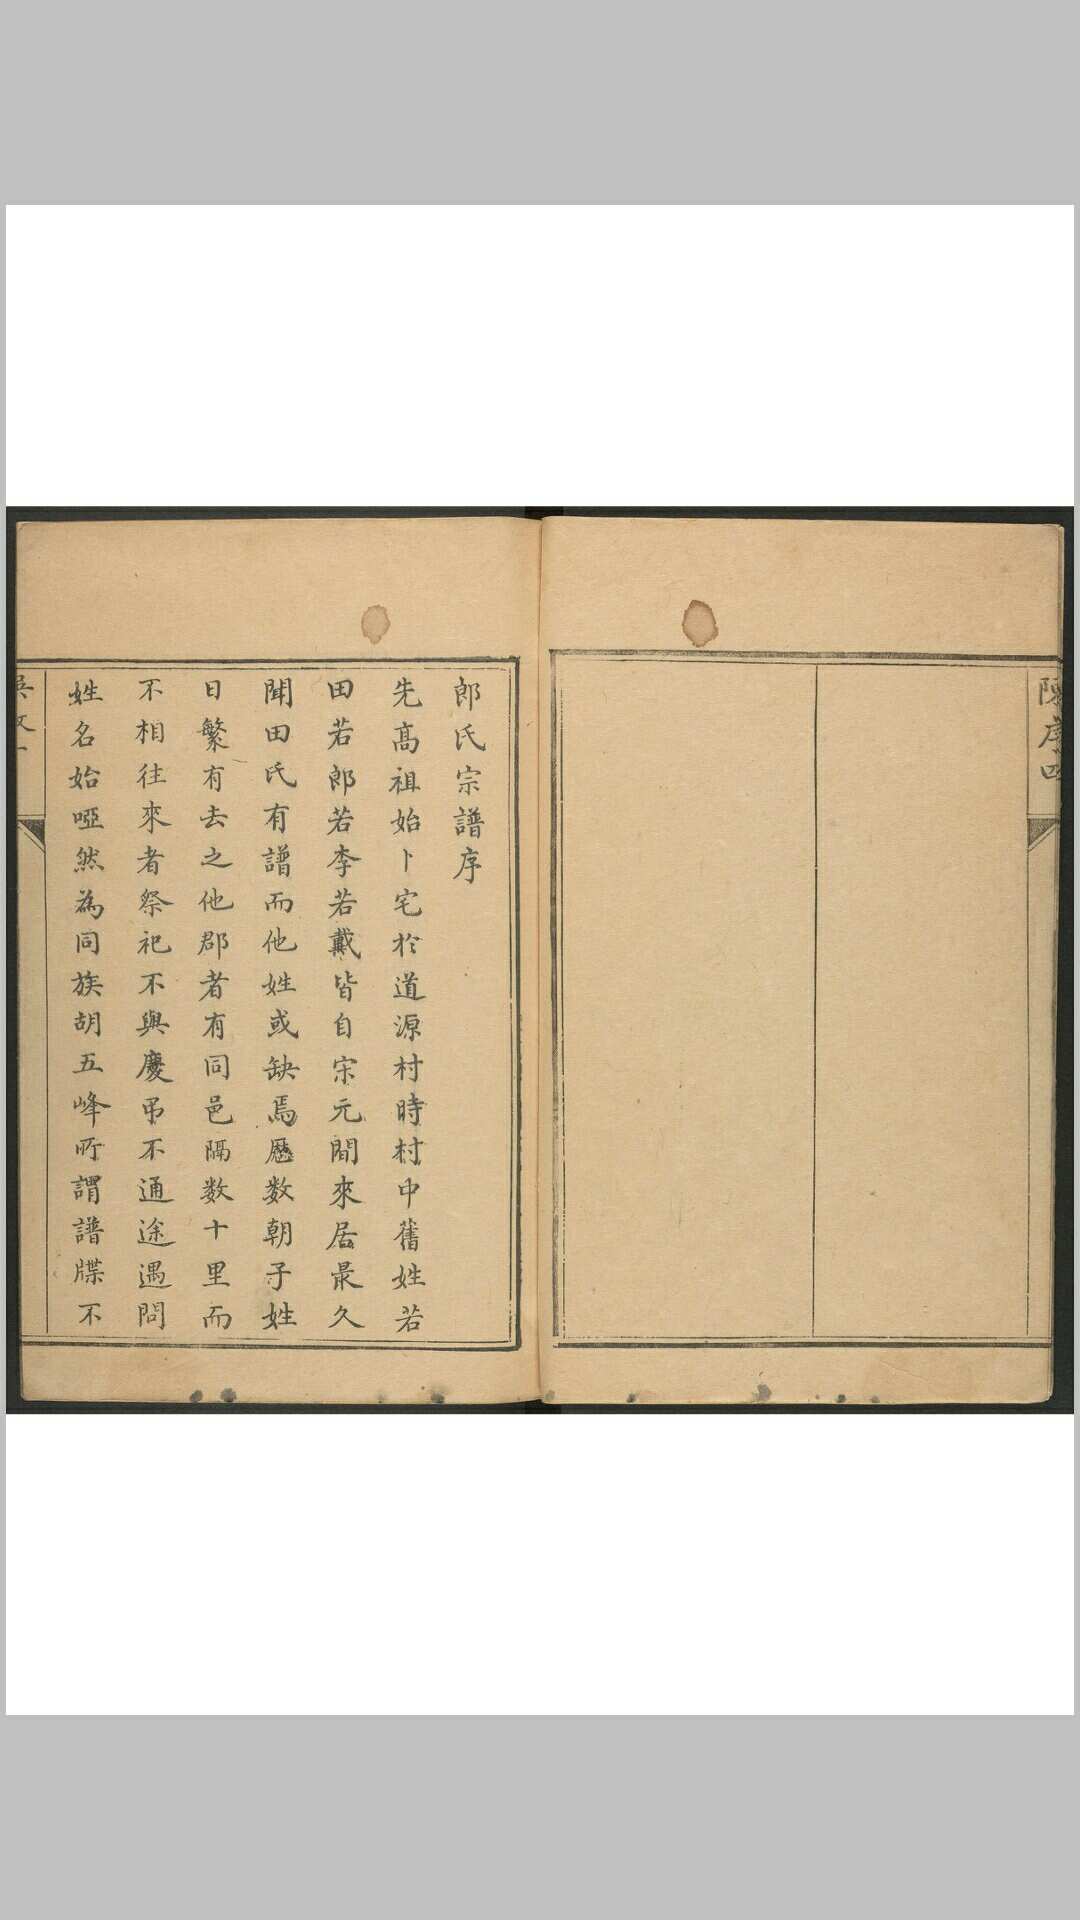 陳序四
郎氏宗譜序
先高祖始卜宅於道源村時村中舊姓若
田若郎若李若戴皆自宋元間來居最久
聞田氏有譜而他姓或缺焉歷数朝子姓
日繁有去之他郡者有同邑隔数十里而
不相往來者祭祀不與慶弔不通途遇問
姓名始啞然為同族胡五峰所謂譜牒不